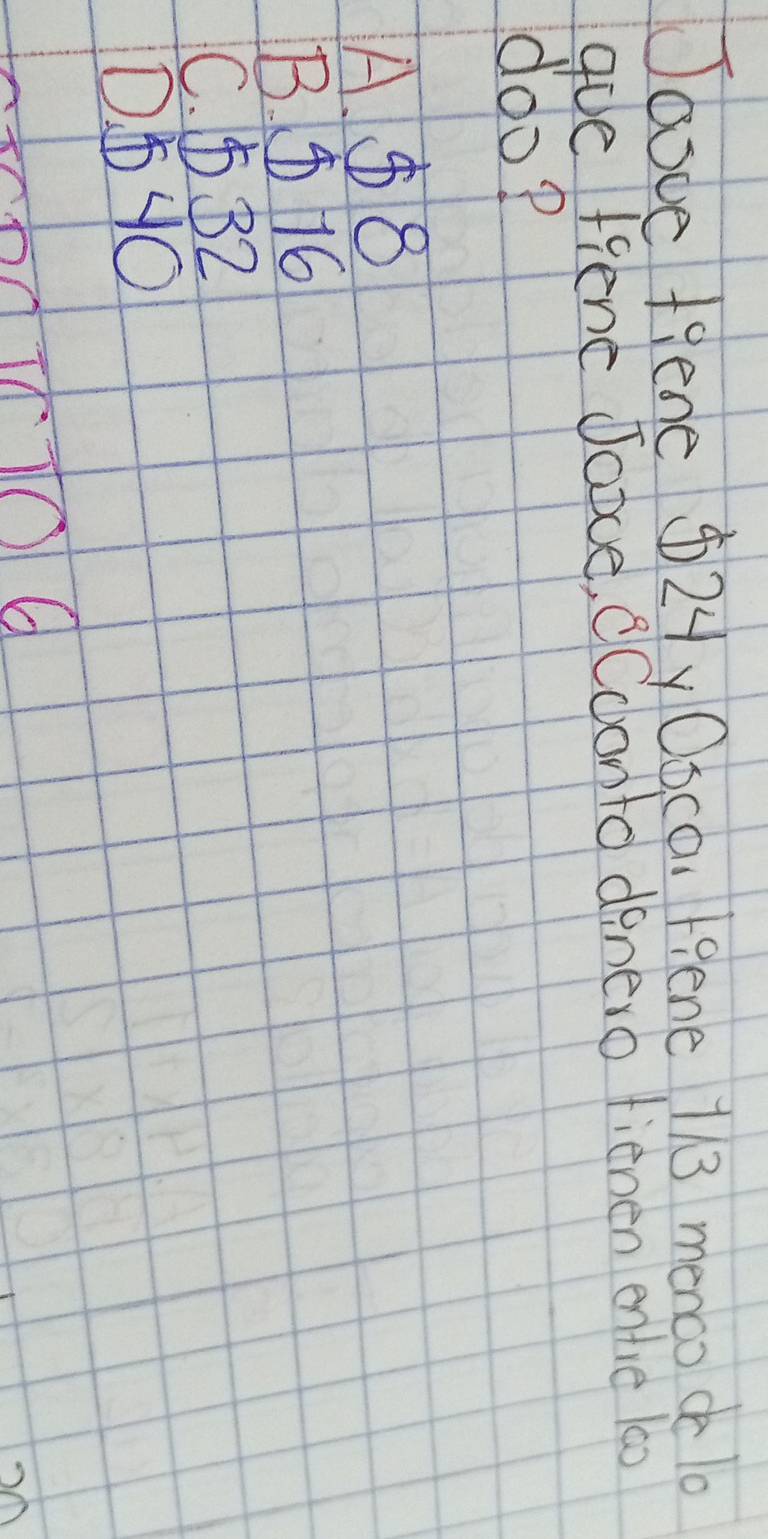 Josue tiene $24 y Oscar tiene 1/3 menos de lo
que tiene Josue, ¿Cuanto dinero tienen entre los
dos?
A. $8
B. $16
C. $32
D. $40